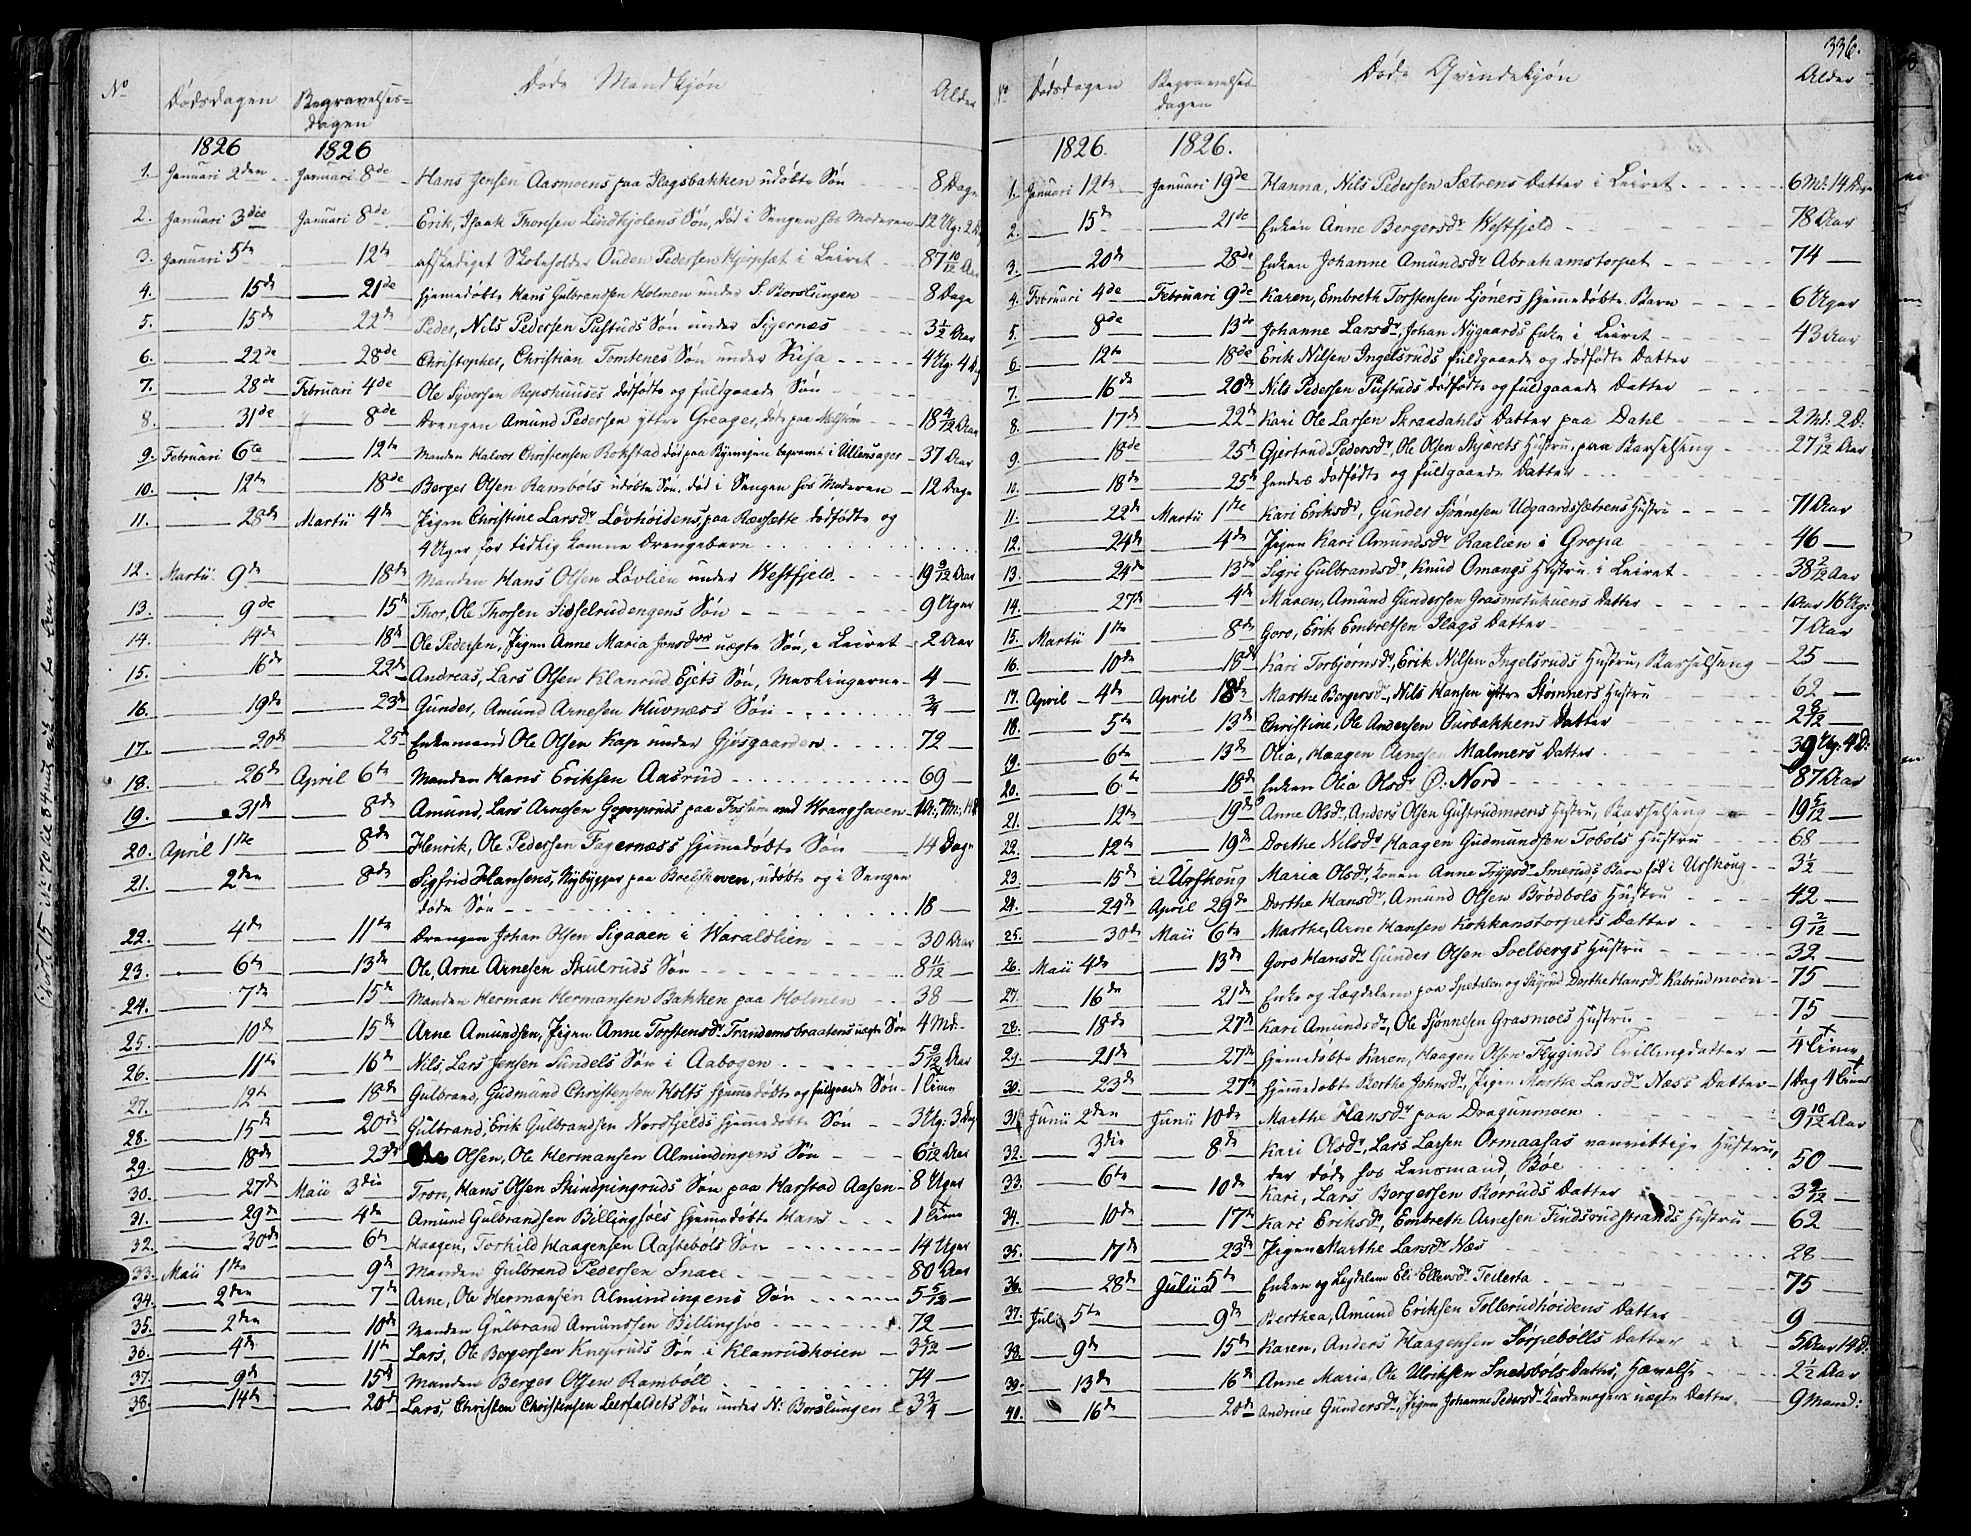 336.
Døde Mandkjøn
No Dødsdagen Begravelses-dagen Alder
1826 1826
1. Januari 2den Januari 8de Hans Jensen Aasmoens paa Slagsbakken udøbte Søn 8 Dage
2. Januari 3die Januari 8de Erik, Isaak Thoresen Lindkjølens Søn, død i Sengen hos Moderen 12 Ug: 2 D
3. Januari 5te 12te afskediget Skoleholder Ouden Pedersen i Leiret 87 10/12 Aar
4. 15de 21de hjemedøbte Hans Gulbrandsen Holmen under S: Borslungen 8 Dage
5. 15de 22de Peder, Nils Pedersen Pustuds Søn under Sigernæs 3½ Aar
6. 22de 28de Christopher, Christian Tomtenes Søn under Kisa 4 Ug: 4 D
7. 28de Februari 4de Ole Syversen Repshuuses dødfødte og fuldgaaede Søn
8. 31de 8de Drengen Amund Pedersen ytre Greager, døde paa 18 4/12 Aar
9. Februari 6te 12te Manden Halvor Christensen Rokstad død paa begravet i Ullensager 37 Aar
10. 12te 18de Berger Olsen Rambøls udøbte Søn, død i Sengen hos Moderen 12 Dage
11. 28de Martii 4de Pigen Christine Larsdr Løvhøidens, paa Rævsætte dødfødte og
4 Uger for tidlig komne Drengebarn
12. Martii 9de 18de Manden Hans Olsen Løvlien under Westfjeld 19 9/12 Aar
13. 9de 15de Thor, Ole Thorsen Sidselrudengens Søn 9 Uger
14. 14de 18de Ole Pedersen, Pigen Anne Maria Jonsdrs uægte Søn, i Leiret 2 Aar
15. 16de 22de Andreas, Lars Olsen Klanrud Ejets Søn, Mashingerne 4
16. 19de 23de Gunder, Amund Arnesen Huvnæss Søn ¾
17. 20de 25de Enkemand Ole Olsen Kap under Gjøsgaarden 72
18. 26de April 6te Manden Hans Eriksen Aasrud 69
19. 31de 8de Amund, Lars Arnesen paa Foslum ved Wranghaven
20. April 1ste 8de Henrik, Ole Pedersen Fagernæss hjemedøbte Søn 14 Dage
21. 2den 8de Sigfrid Hansens, Nybygger paa udøbte og i Sengen
døde Søn 18
22. 4de 11te Drengen Johan Olsen Sigaaen i Waraldlien 30 Aar
23. 6te 13de Ole, Arne Arnesen Skulruds Søn 8 11/12
24. 7de 15de Manden Herman Hermansen Bakken paa Holmen 38
25. 10de 15de Arne Amundsen, Pigen Anne Torstensdr Trandemsbraatens uægte Søn 4 Md:
26. 11te 16de Nils, Lars Jensen Sundels Søn i Aabogen 5 9/12 Aar
27. 12te 18de Gulbrand, Gudmund Christensen Holts hjemmedøbte og fuldgaaede Søn 1 Time
28. 15de 20de Gulbrand, Erik Gulbrandsen Nordfjelds hjemedøbte Søn 3 Ug: 3 Dag
29. 18de 23de Olsen, Ole Hermansen Almindengens Søn 6 1/12 Aar
30. 27de Maii 3die Tron, Hans Olsen Skindpingruds Søn paa Harstad Aasen 8 Uger
31. 29de 4de Amund Gulbrandsen Billingsøes hjemedøbte Hans 1 Time
32. 30de 6te Haagen, Torkild Haagensen Aastebøls Søn 14 Uger
33. Maii 1ste 9de Manden Gulbrand Pedersen Snare 80 Aar
34. 2den 7de Arne, Ole Hermansen Almindingens Søn 5 5/12
35. 2den 10de Manden Gulbrand Amundsen Billingsøe 72
36. 4de 11te Lars, Ole Bergersen Knejruds Søn i Klanrudkoien 3 5/12
37. 9de 15de Manden Berger Olsen Rambøll 74
38. 14de 20de Lars, Christen Christensen Leerfaldets Søn under N: Borslungen 3¾
Døde Qvindekjøn
No Dødsdagen Begravelses-dagen Alder
1826. 1826.
1. Januari 12te Januari 19de Hanna, Nils Pedersen Sætrens Datter i Leiret 6 Md: 14 Dage
2. 15de 21de Enken Anne Bergersdr Westfjeld 78 Aar
3. 20de 28de Enken Johanne Amundsdr Abrahamstorpet 74
4. Februari 4de Februari 9de Karen, Embreth Torstensen Sjøners hjemedøbte Barn 6 Uger
5. 8de 13de Johanne Larsdr, Johan Nygaards Enke i Leiret 43 Aar
6. 12te 18de Erik Nilsen Ingelsruds fuldgaaede og dødfødte Datter
7. 16de 20de Nils Pedersen Pustuds dødfødte og fuldgaaede Datter
8. 17de 22de Kari Ole Larsen Skraadahls Datter paa Dahl 2 Md: 2 D:
9. 18de 25de Gjertrud Pedersdr, Ole Olsen Skjærets Hustru, paa Barselseng 27 3/12 Aar
10. 18de 25de hendes dødfødte og fuldgaaede Datter
11. 22de Martii 1ste Kari Eriksdr, Gunder Sjønnesen Udgaardssætrens Hustru 71 Aar
12. 24de 4de Pigen Kari Amundsdr Raalien i Gropa 46
13. 24de 13de Sigri Gulbrandsdr, Knud Omangs Hustru i Leiret 38 2/12 Aar
14. 27de 4de Maren, Amund Gundersen Grasmotukuens Datter 1 Aar 16 Ug:
15. Martii 1ste 8de Goro, Erik Embretsen Slags Datter 7 Aar
16. 10de 18de Kari Torbjørnsdr, Erik Nilsen Ingelsruds Hustru, Barselseng 25
17. April 4de April 18de Marthe Bergersdr, Nils Hansen ytre Stømners Hustru 62
18. 5te 13de Christine, Ole Andersen Ourbakkens Datter 2 8/12
19. 6te 13de Olia, Haagen Malmers Datter 39 Ug: 4 D:
20. 6te 18de Enken Olia Olsdr Ø: Nord 87 Aar
21. 12te 19de Anne Olsdr, Anders Olsen Gustrudmoens Hustru, Barselseng 19 5/12
22. 12te 19de Dorthe Nilsdr Haagen Gudmundsen Tobøls Hustru 68
23. 15de i Urskoug Maria Olsdr, Konen Anne Trygsdr Smeruds Barn fød i Urskoug 3½
24. 24de April 29de Dorthe Hansdr Amund Olsen Brødbøls Hustru 42
25. 30de Maii 6te Marthe, Arne Hansen Kokkanstorpets Datter 9 2/12
26. Maii 4de 13de Goro Hansdr Gunder Olsen Soelbergs Hustru 32
27. 16de 21de Enke og Lægdelem paa Spetalen og Skyrud Dorthe Hansdr Kabrudmoen 75
28. 18de 27de Kari Amundsdr, Ole Sjønnesen Grasmoes Hustru 75
29. 21de 27de hjemedøbte Karen, Haagen Olsen Flyginds Tvillingdatter ¼ Time
30. 23de 27de hjemedøbte Berthe Johnsdr, Pigen Marthe Larsdr Næss Datter 1 Dag 4 Timer
31. Junii 2den Junii 10de Marthe Hansdr paa Dragonmoen 9 10/12 Aar
32. 3die 8de Kari Olsdr, Lars Larsen Ormaasas vanvittige Hustru,
der døde hos Lensmand Bøe 50
33. 6te 10de Kari, Lars Borgersen Børruds Datter 3 9/12
34. 10de 17de Kari Eriksdr, Embreth Arnesen Findsrudstrands Hustru 62
35. 17de 23de Pigen Marthe Larsdr Næs 28
36. 28de Julii 5te Enken og Legdelem Eli Ellensdr Teilesta 75
37. Julii 5te 9de Berthea, Amund Eriksen Tollerudhøidens Datter 9
38. 9de 15de Karen, Anders Haagensen Sørpebølls Datter 5 Aar 14 D:
39. 13de 16de Anne Maria, Ole Ulriksen Snedsbøls Datter, Hævelse 2½ Aar
40. 16de 20de Andrine Gundersdr, Pigen Johanne Pedersdr Kardemagers uægte Datter 9 Maaned: